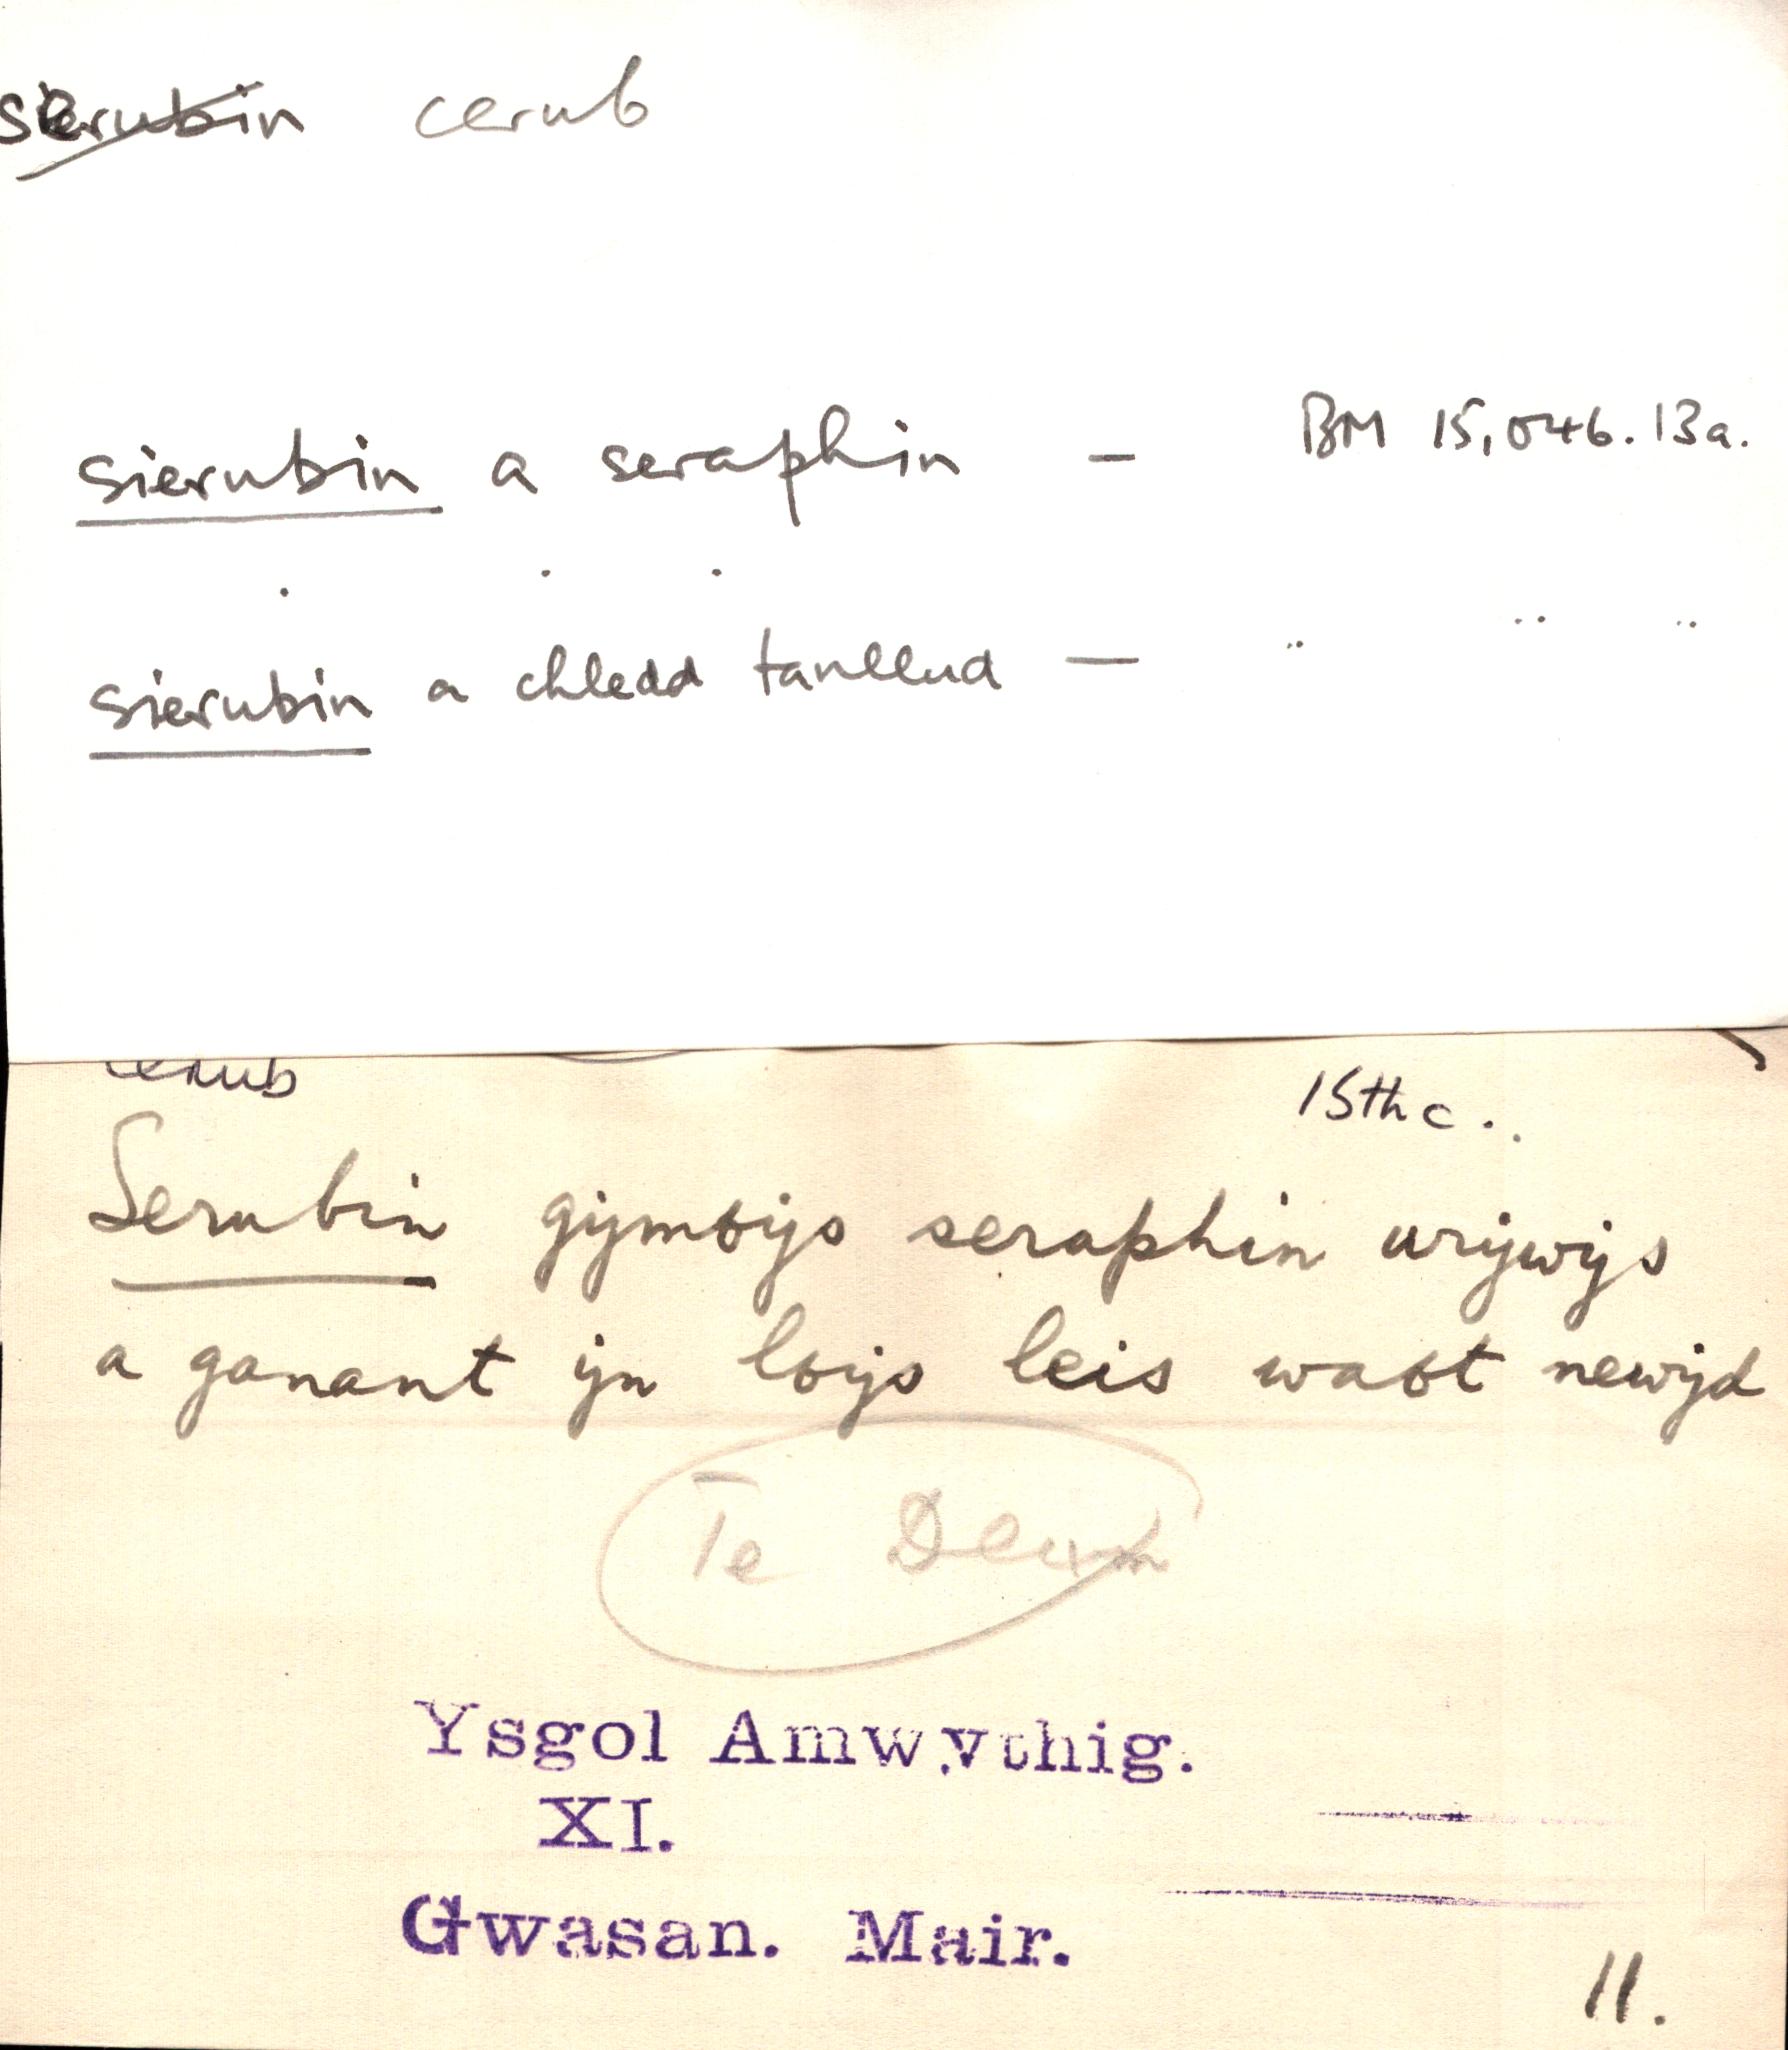 sierubin cerub
sierubin a seraphin - BM 15,046.13a.
. . .
sierubin a chledd tanllud — " " "
cerub 15th c.
Serubin gymỽys seraphin urywys
a ganant yn lỽys leis waỽt newyd
Te Deum
Ysgol Amwythig.
XI.
Gwasan. Mair.
11.